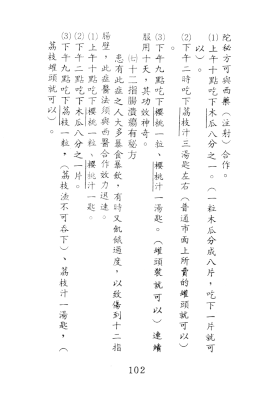 陀秘方可與西藥（注射）合作。
(1)上午十點吃下木瓜八分之一。（一粒木瓜分成八片，吃下一片就可
以）。
(2)下午二時吃下荔枝汁三湯匙左右（普通市面上所賣的罐頭就可以）
。
(3)下午九點吃下櫻桃一粒、櫻桃汁一湯匙。（罐頭裝就可以）連續
服用十天，其功效神奇。
㈡十二指腸潰瘍有秘方
患有此症之人大多暴食暴飲，有時又飢餓過度，以致傷到十二指
腸壁，此症醫法須與西醫合作效力迅速。
(1)上午十點吃下櫻桃一粒、櫻桃汁一匙。
(2)下午二點吃下木瓜八分之一片。
(3)下午九點吃下荔枝一粒，（荔枝渣不可吞下）、荔枝汁一湯匙，（
荔枝罐頭就可以）。
102